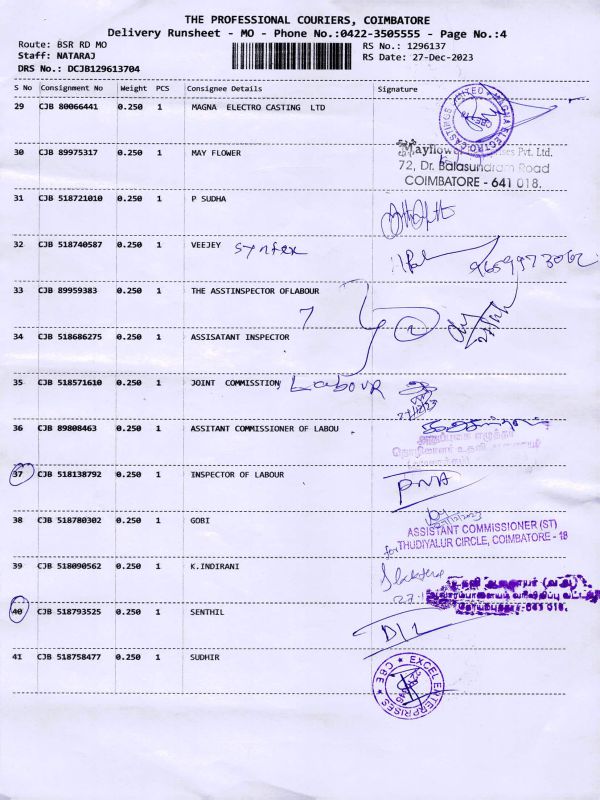 THE PROFESSIONAL COURIERS, COIMBATORE
Delivery Runsheet - MO - Phone No.:0422-3505555 - Page No.:4
Route: BSR RD MO RS No.: 1296137
Staff: NATARAJ RS Date: 27-Dec-2023
DRS No.: DCJB129613704
S No Consignment No Weight PCS Consignee Details Signature
29 CJB 80066441 0.250 1 MAGNA ELECTRO CASTING LTD
30 CJB 89975317 0.250 1 MAY FLOWER
Mayflower Pvt. Ltd.
72, Dr. Balasundram Road
COIMBATORE - 641 018.
31 CJB 518721010 0.250 1 P SUDHA
32 CJB 518740587 0.250 1 VEEJEY Synfex
33 CJB 89959383 0.250 1 THE ASSTINSPECTOR OFLABOUR
34 CJB 518686275 0.250 1 ASSISATANT INSPECTOR
35 CJB 518571610 0.250 1 JOINT COMMISSTION Labour
36 CJB 89808463 0.250 1 ASSITANT COMMISSIONER OF LABOU
37 CJB 518138792 0.250 1 INSPECTOR OF LABOUR PNA
38 CJB 518780302 0.250 1 GOBI
ASSISTANT COMMISSIONER (ST)
for THUDIYALUR CIRCLE, COIMBATORE - 18
39 CJB 518090562 0.250 1 K.INDIRANI
40 CJB 518793525 0.250 1 SENTHIL D/L
641 018.
41 CJB 518758477 0.250 1 SUDHIR
EXCEL ENTERPRISES ★ CBE ★